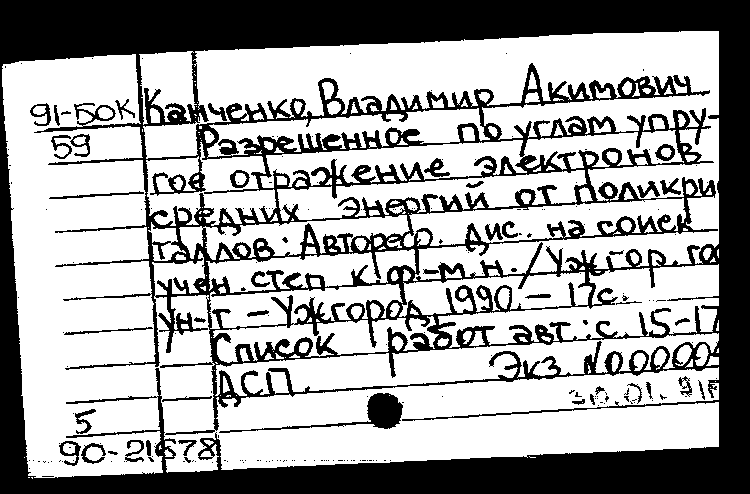 91-БОК Канченко, Владимир Акимович
59 Разрешенное по углам упру-
гое отражение электронов
средних энергий от поликри
таллов: Автореф. дис. на соиск
учен. степ. к.ф.-м.н. / Ужгор. гос
ун-т. - Ужгород, 1990. - 17с.
Список работ авт.: с. 15-17
ДСП. Экз. N00000
5 30.01.91
90-21678